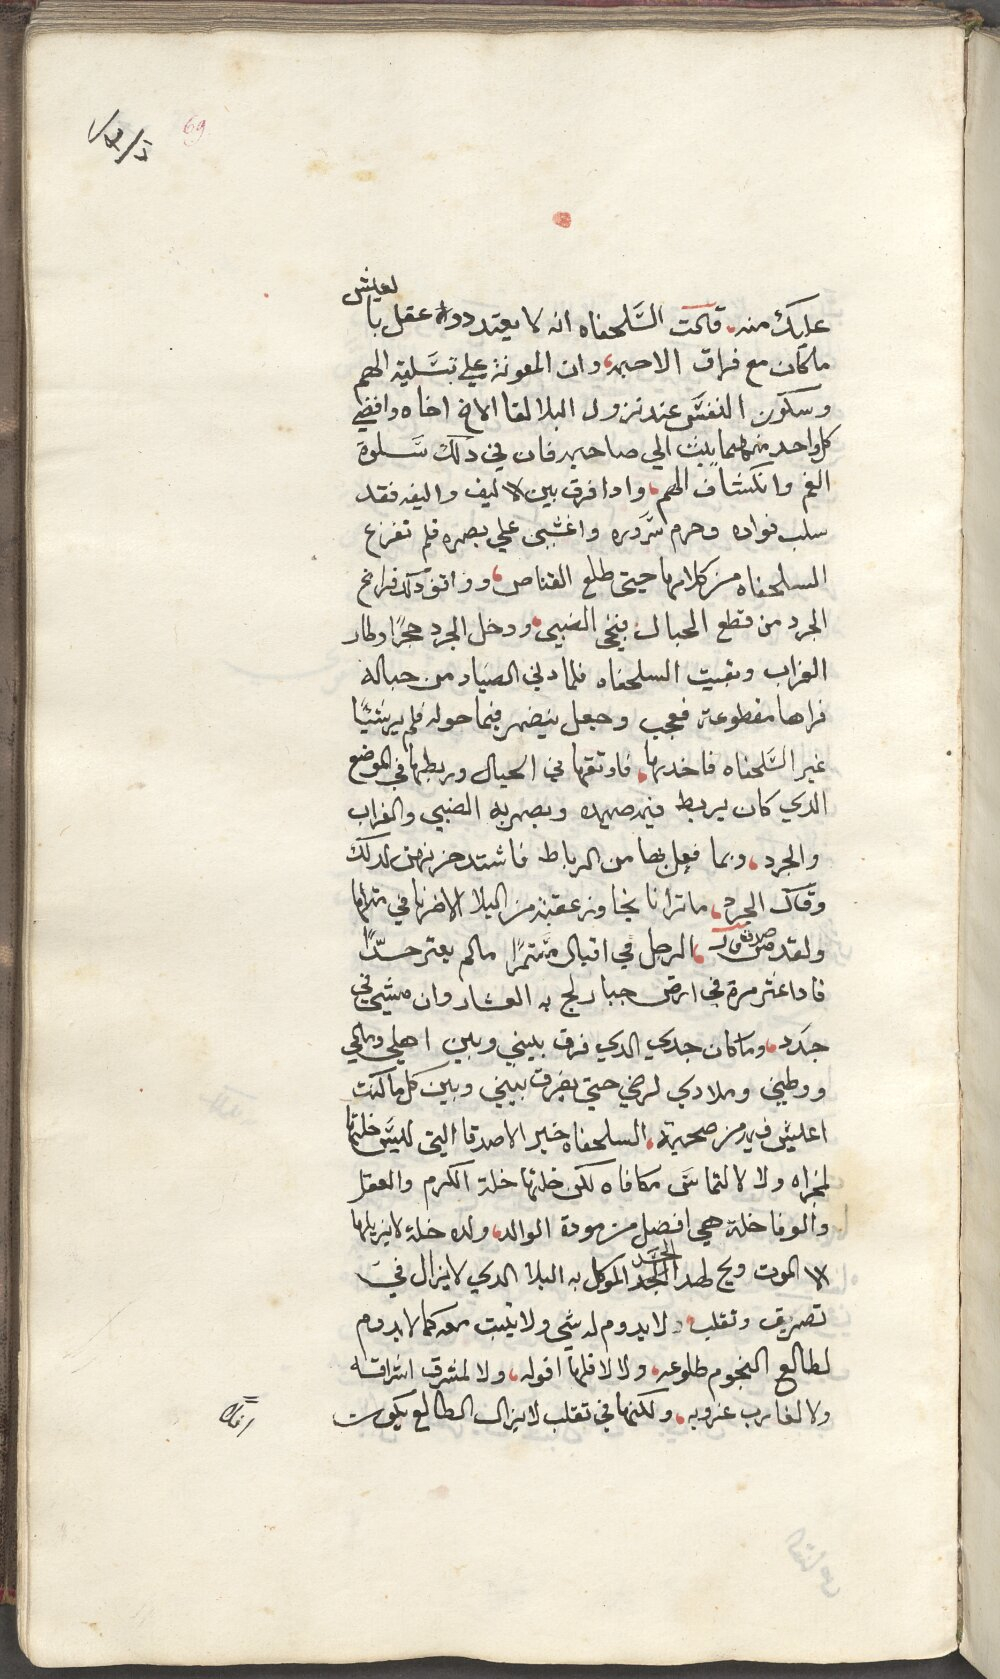 69
لعيش
عليك منه، قالت السَّلحفاه انه لا يعتد دواه عقل با
ماكان مع فراق الاحبه، وان المعونة علي تسَّلية الهم
وسكون النفسَّ عند نزول البلا لقا الاخ اخاه وافضي
كل واحد منهما يبث الي صاحبه فان في دلك سَّلوة
الغم وانكشاف الهم، وادا فرق بين الاليف واليفه فقد
سلب فواده وحرم سَّروره واغشي علي بصره فلم تفرغ
السلحفاه من كلامها حيتي طلع القناص، ووافق دلك فراغ
الجرد من قطع الحبال فنجي الضبي، ودخل الجرد حجرًا وطار
الغراب وبقيت السلحفاه فلما دني الصياد من حباله
فراها مقطوعة فعجب وجعل ينضر فيما حوله فلم يرشيًا
غير السَّلحفاه فاخدها، فاوتقها في الحبال وربطها في الموضع
الدي كان يربط فيه صيده وبصر به الضبي والغراب
والجرد، وبما فعل بها من الرباط فاشتد حزنهن لدلك
وقال الجرد، ماترانا نجاوز عقبة من البلا الا صرنا في
ولقد صدق، الرجل في اقبال مستمرًا مالم يعتر
فادا عثر مرة في ارض جبار لج به العشار وان مشي في
جدد، وما كان جدي الدي فرق بيني وبين اهلي ومالي
ووطيني وبلادي لرضي حيتي يفرق بيني وبين كل ماكنت
اعيش فيه من صحبة، السلحفاه خير الاصدقا اليتي ليسَّ خلتها
لمجراه ولا لالتماسَّ مكافاه لكن خلتها خلة الكرم والعقل
والوفا خلة هي افضل من مودة الوالد، ولده خلة لا يزيلها
الا الموت ويح لهدا الجسَّد الموكل به البلا الدي لايزال في
تصريف وتقلب، لايدوم له شي ولا يتبت معه كما لايدوم
لطالع النجوم طلوعه، ولا لافلها افوله، ولا لمشرق اشراقه
ولا لغارب غروبه، ولكنها في تقلب لايزال الطالع يكون